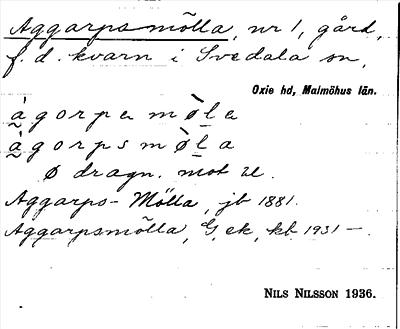 Aggarpsmölla, nr 1, gård,
f. d. kvarn i Svedala sn,
Oxie hd, Malmöhus län.
àgorpamø̀la
àgorpsmø̀la
ø dragn. mot
Aggarps-Mölla, jb 1881.
Aggarpsmölla, G. ek, kb 1931 –.
NILS NILSSON 1936.